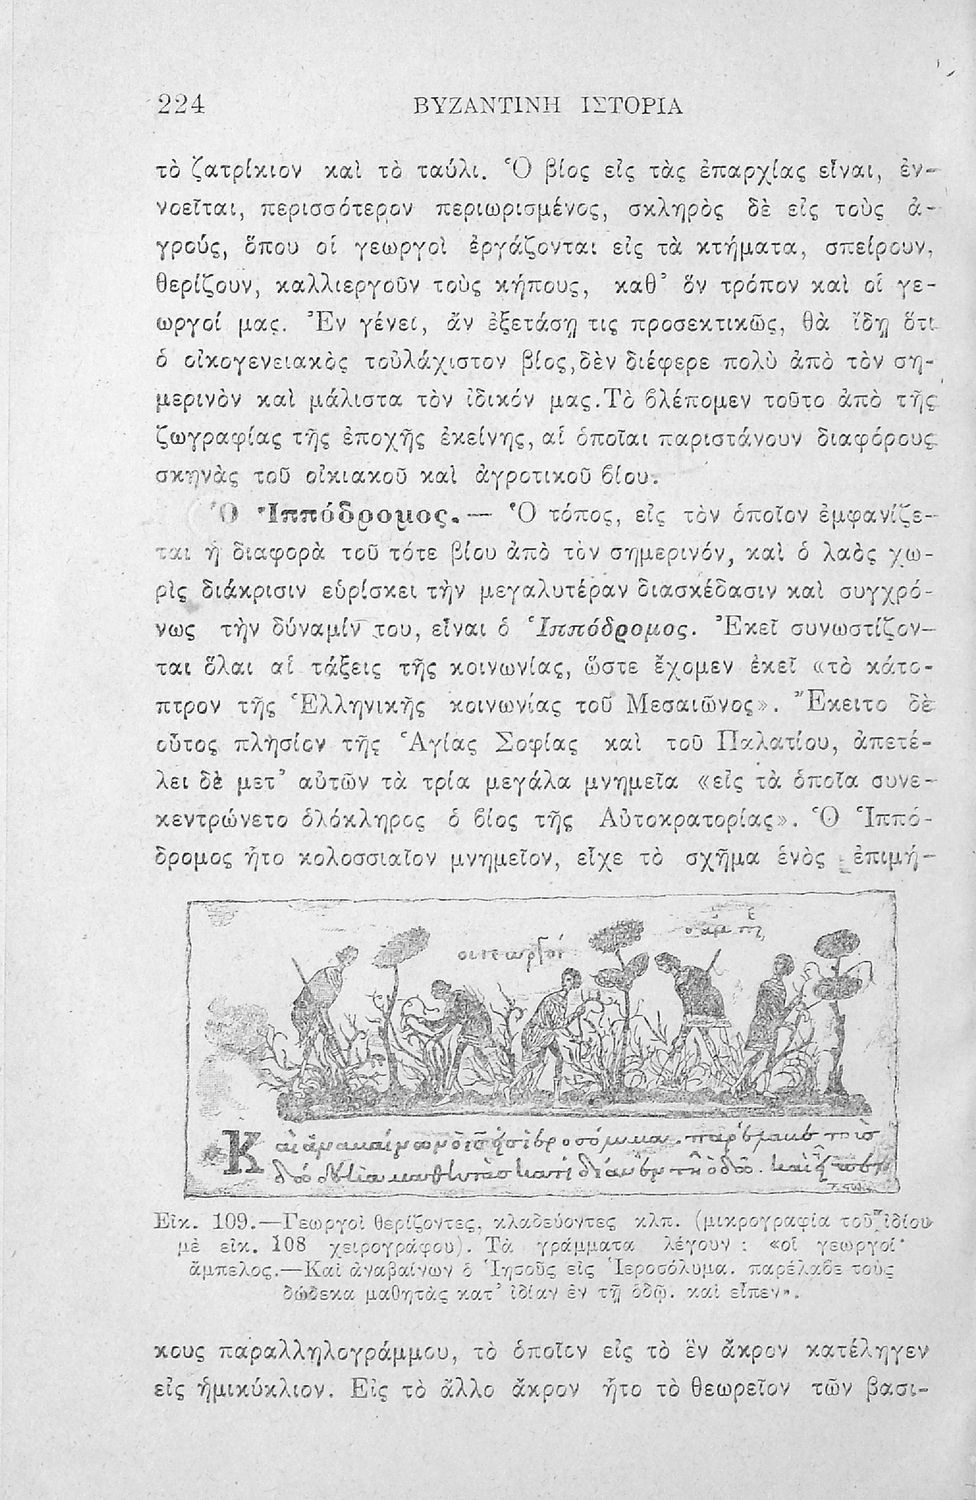 224 ΒΥΖΑΝΤΙΝΗ ΙΣΤΟΡΙΑ
τὸ ζατρίκιον καὶ τὸ ταύλι. Ὁ βίος εἰς τὰς ἐπαρχίας εἶναι, ἐν-
νοεῖται, περισσότερον περιωρισμένος, σκληρὸς δὲ εἰς τοὺς ἀ-
γρούς, ὅπου οἱ γεωργοὶ ἐργάζονται εἰς τὰ κτήματα, σπείρουν,
θερίζουν, καλλιεργοῦν τοὺς κήπους, καθ’ ὃν τρόπον καὶ οἱ γε-
ωργοί μας. Ἐν γένει, ἂν ἐξετάσῃ τις προσεκτικῶς, θὰ ἴδῃ ὅτι
ὁ οἰκογενειακὸς τοὐλάχιστον βίος,δὲν διέφερε πολὺ ἀπὸ τὸν ση-
μερινὸν καὶ μάλιστα τὸν ἰδικόν μας.Τὸ βλέπομεν τοῦτο ἀπὸ τῆς
ζωγραφίας τῆς ἐποχῆς ἐκείνης, αἱ ὁποῖαι παριστάνουν διαφόρους
σκηνὰς τοῦ οἰκιακοῦ καὶ ἀγροτικοῦ βίου.
Ὁ Ἱππόδρομος.— Ὁ τόπος, εἰς τὸν ὁποῖον ἐμφανίζε-
ται ἡ διαφορὰ τοῦ τότε βίου ἀπὸ τὸν σημερινόν, καὶ ὁ λαὸς χω-
ρὶς διάκρισιν εὑρίσκει τὴν μεγαλυτέραν διασκέδασιν καὶ συγχρό-
νως τὴν δύναμίν του, εἶναι ὁ Ἱππόδρομος. Ἐκεῖ συνωστίζον-
ται ὅλαι αἱ τάξεις τῆς κοινωνίας, ὥστε ἔχομεν ἐκεῖ «τὸ κάτο-
πτρον τῆς Ἑλληνικῆς κοινωνίας τοῦ Μεσαιῶνος». Ἔκειτο δὲ
οὗτος πλησίον τῆς Ἁγίας Σοφίας καὶ τοῦ Παλατίου, ἀπετέ-
λει δὲ μετ’ αὐτῶν τὰ τρία μεγάλα μνημεῖα «εἰς τὰ ὁποῖα συνε-
κεντρώνετο ὁλόκληρος ὁ βίος τῆς Αὐτοκρατορίας». Ὁ Ἱππό-
δρομος ἦτο κολοσσιαῖον μνημεῖον, εἶχε τὸ σχῆμα ἑνὸς ἐπιμή-
οι γεωργοί
Εἰκ. 109.—Γεωργοὶ θερίζοντες, κλαδεύοντες κλπ. (μικρογραφία τοῦ ἰδίου
μὲ εἰκ. 108 χειρογράφου). Τὰ γράμματα λέγουν : «οἱ γεωργοί·
ἄμπελος.—Καὶ ἀναβαίνων ὁ Ἰησοῦς εἰς Ἱεροσόλυμα, παρέλαβε τοὺς
δώδεκα μαθητὰς κατ’ ἰδίαν ἐν τῇ ὁδῷ, καὶ εἶπεν».
κους παραλληλογράμμου, τὸ ὁποῖον εἰς τὸ ἓν ἄκρον κατέληγεν
εἰς ἡμικύκλιον. Εἰς τὸ ἄλλο ἄκρον ἦτο τὸ θεωρεῖον τῶν βασι-